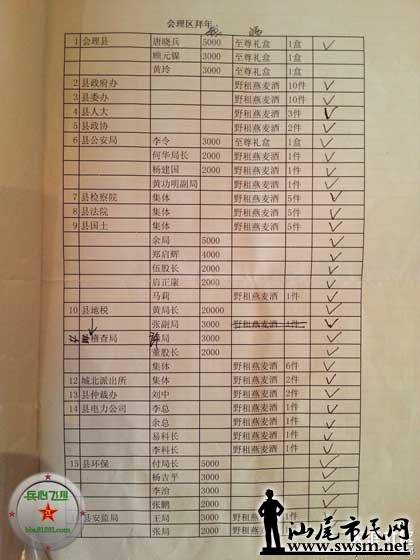 会理区拜年
1 会理县 唐晓兵 5000 至尊礼盒 1盒
顾元禄 3000 至尊礼盒 1盒
黄玲 3000 至尊礼盒 1盒
2 县政府办 野租燕麦酒 10件
3 县委办 野租燕麦酒 10件
4 县人大 野租燕麦酒 3件
5 县政协 野租燕麦酒 2件
6 县公安局 李令 3000 至尊礼盒 1盒
何华局长 2000 野租燕麦酒 1件
杨建国 2000 野租燕麦酒 1件
黄功明副局 野租燕麦酒 1件
7 县检察院 集体 野租燕麦酒 5件
8 县法院 集体 野租燕麦酒 5件
9 县国土 集体 野租燕麦酒 5件
余局 5000
郑启辉 4000
伍股长 2000
启正康 2000
马莉 野租燕麦酒 1件
10 县地税 黄局长 20000
张副局 3000 野租燕麦酒 1件
稽查局 局 3000
董股长 2000
集体 野租燕麦酒 6件
12 城北派出所 集体 野租燕麦酒 2件
13 县仲裁办 刘中 野租燕麦酒 2件
14 县电力公司 李总 野租燕麦酒 1件
余总 野租燕麦酒 1件
易科长 野租燕麦酒 1件
李科长 野租燕麦酒 1件
15 县环保 付局长 5000
杨吉平 3000
李治 3000
张鹏 2000
县安监局 王局 3000 野租燕麦酒 1件
张局 2000 野租燕麦酒 1件
民心飞思
bbs.81281.com
汕尾市民网
www.swsm.net